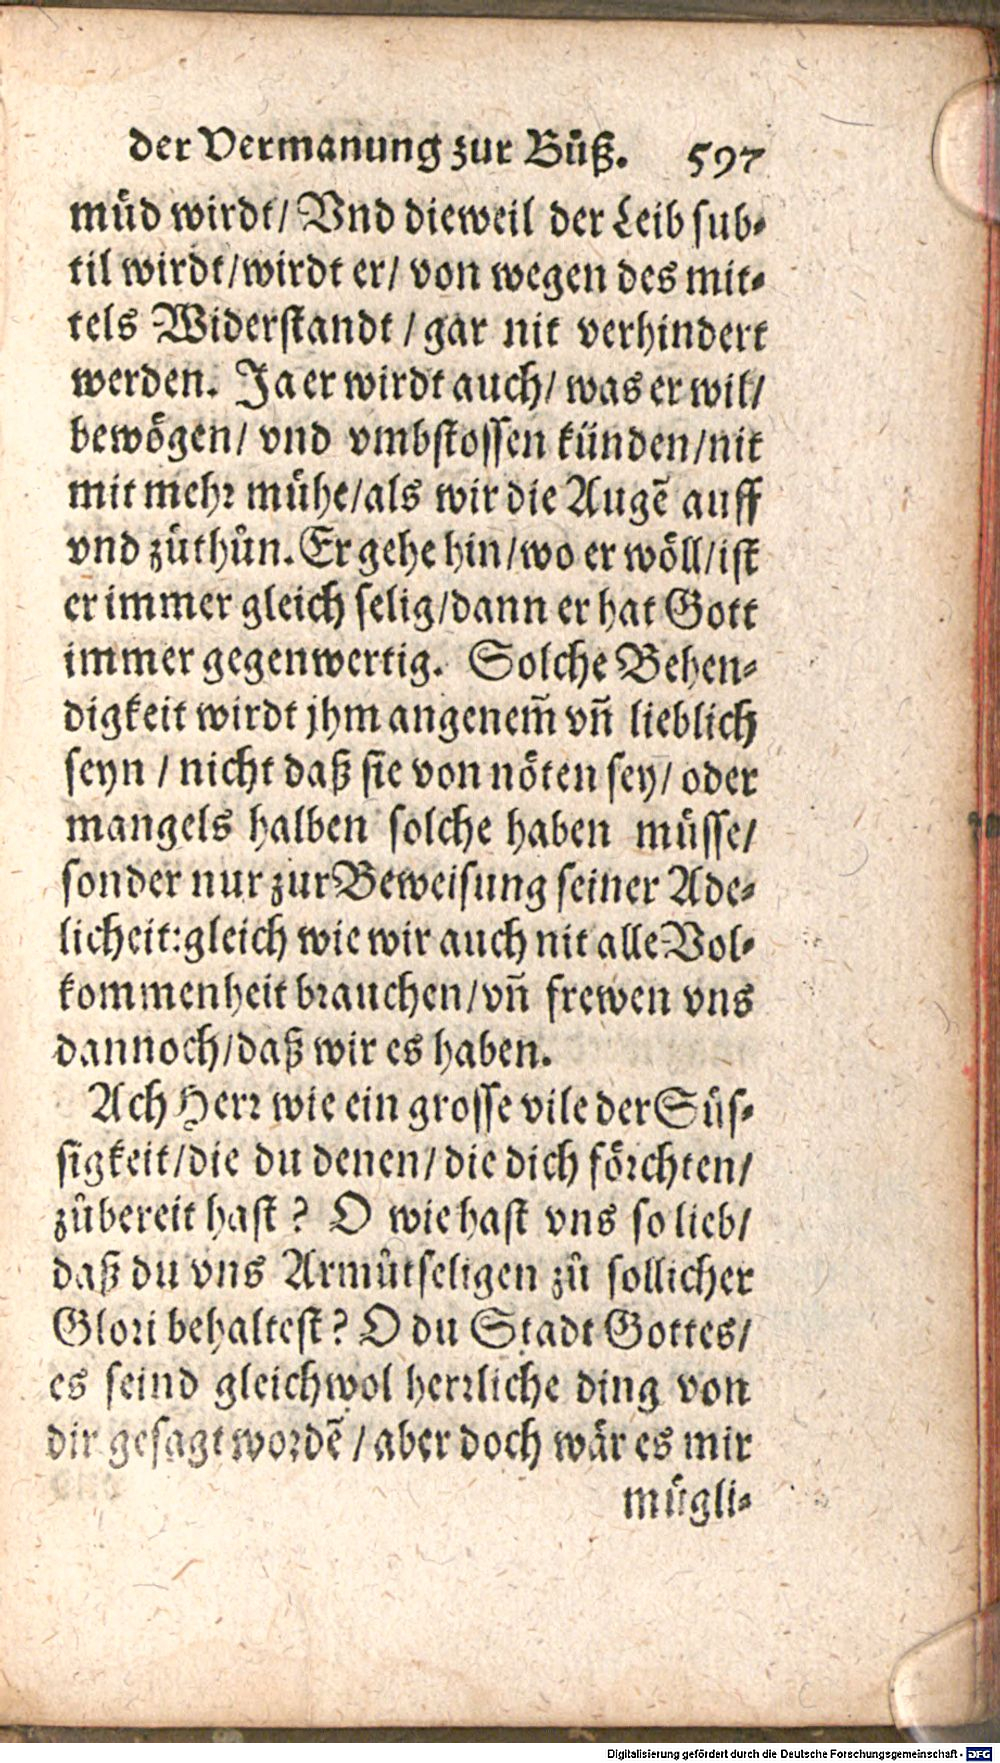 der Vermanung zur Bůß. 597
můd wirdt/ Vnd dieweil der Leib sub-
til wirdt/wirdt er/ von wegen des mit-
tels Widerstandt / gar nit verhindert
werden. Ja er wirdt auch/ was er wil/
bewögen/ vnd vmbstossen künden/nit
mit mehr mühe/als wir die Augē auff
vnd zůthůn. Er gehe hin/wo er wöll/ist
er immer gleich selig/dann er hat Gott
immer gegenwertig. Solche Behen-
digkeit wirdt jhm angenem̃ vñ lieblich
seyn / nicht daß sie von nöten sey/ oder
mangels halben solche haben müsse/
sonder nur zur Beweisung seiner Ade-
licheit:gleich wie wir auch nit alle Vol-
kommenheit brauchen/vñ frewen vns
dannoch/daß wir es haben.
Ach Herr wie ein grosse vile der Süs-
sigkeit/die du denen/die dich förchten/
zůbereit hast ? O wie hast vns so lieb/
daß du vns Armůtseligen zů sollicher
Glori behaltest? O du Stadt Gottes/
es seind gleichwol herrliche ding von
dir gesagt wordē /aber doch wär es mir
mügli-
Digitalisierung gefördert durch die Deutsche Forschungsgemeinschaft - DFG